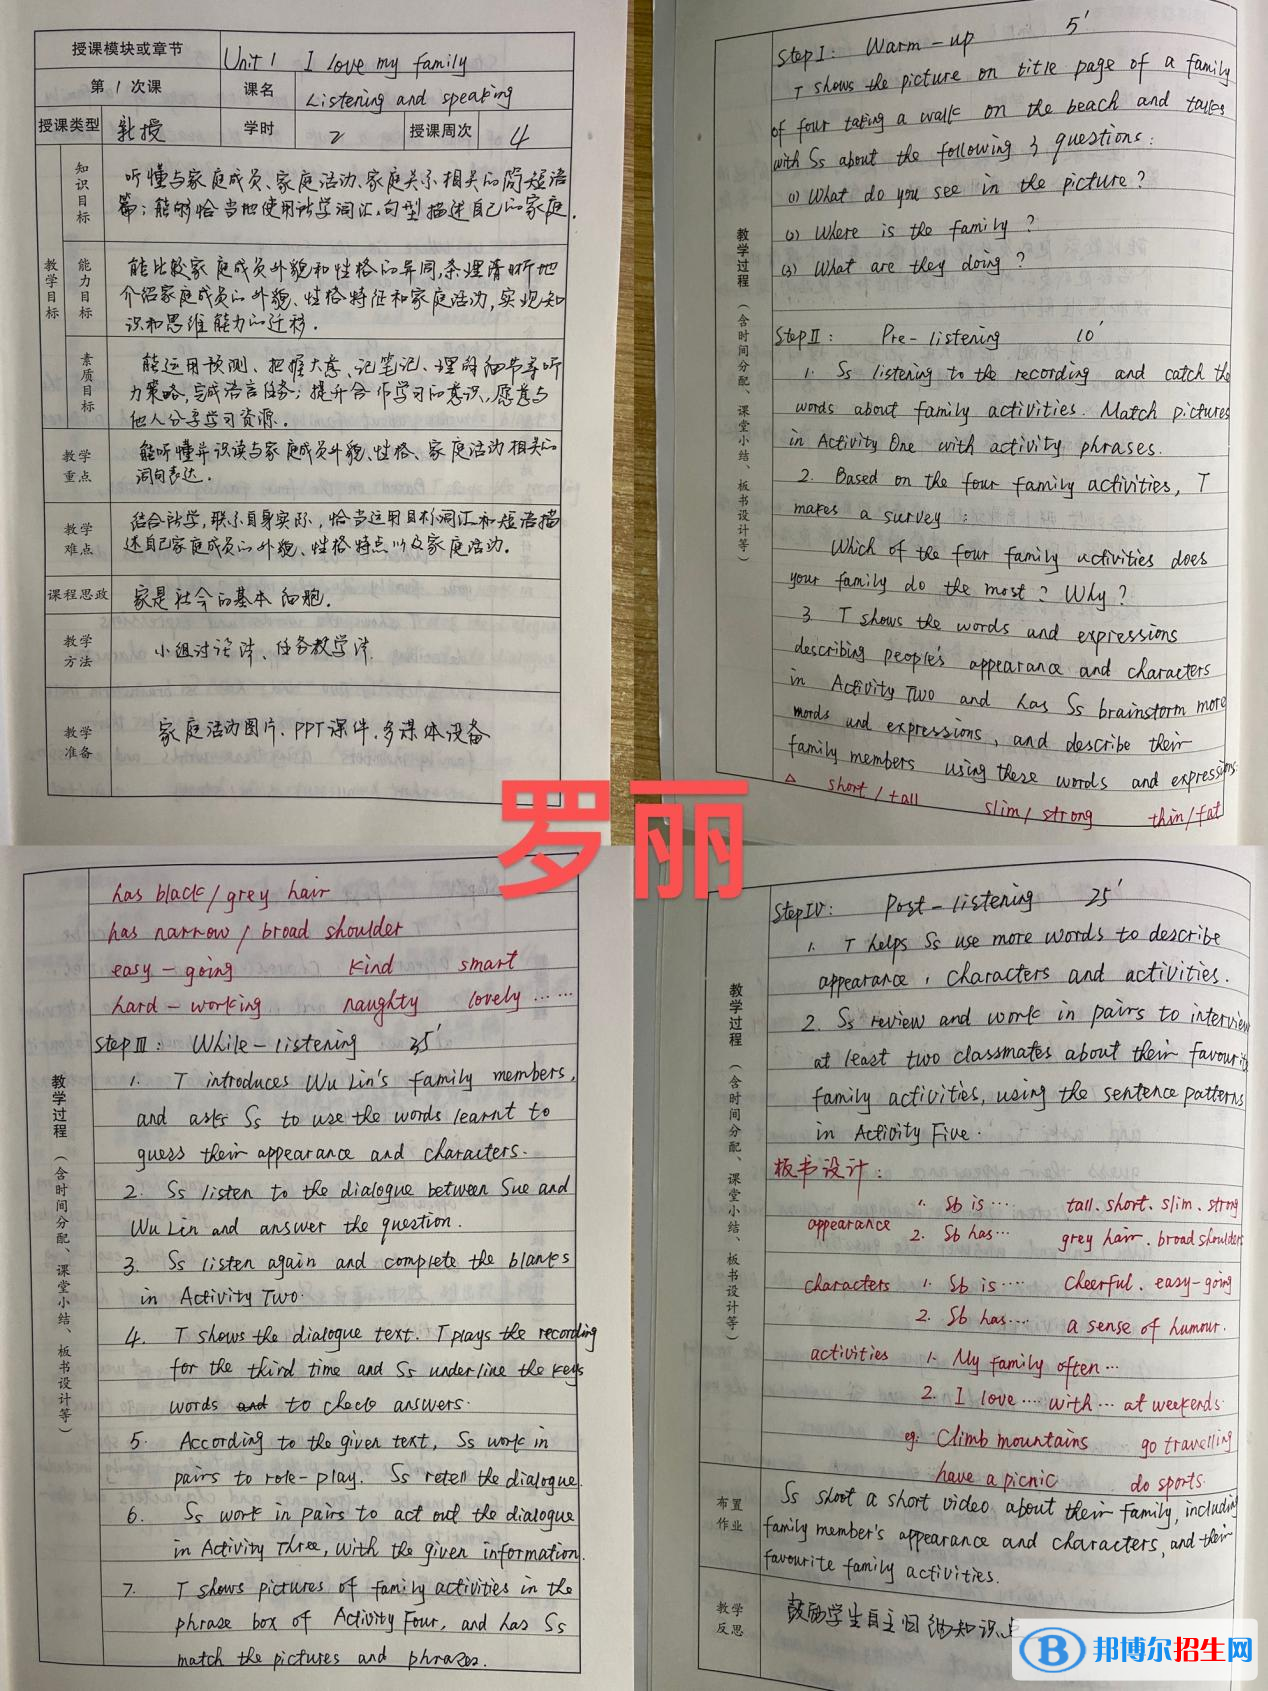 授课模块或章节 Unit 1 I love my family
第 1 次课 课名 Listening and speaking
授课类型 新授 学时 2 授课周次 4
教学目标
知识目标
听懂与家庭成员、家庭活动、家庭关系相关的简短语
篇;能够恰当地使用所学词汇、句型描述自己的家庭.
能力目标
能比较家庭成员外貌和性格的异同,条理清晰地
介绍家庭成员的外貌、性格特征和家庭活动,实现知
识和思维能力的迁移.
素质目标
能运用预测、把握大意、记笔记、理解细节等听
力策略,完成语言任务;提升合作学习的意识,愿意与
他人分享学习资源.
教学重点
能听懂并识读与家庭成员外貌、性格、家庭活动相关的
词句表达.
教学难点
结合所学,联系自身实际,恰当运用目标词汇和短语描
述自己家庭成员的外貌、性格特点以及家庭活动.
课程思政 家是社会的基本细胞.
教学方法 小组讨论法、任务教学法.
教学准备 家庭活动图片、PPT课件、多媒体设备
教学过程(含时间分配、课堂小结、板书设计等)
Step I: Warm-up 5'
T shows the picture on title page of a family
of four taking a walk on the beach and talks
with Ss about the following 3 questions:
(1) What do you see in the picture?
(2) Where is the family?
(3) What are they doing?
Step II: Pre-listening 10'
1. Ss listening to the recording and catch the
words about family activities. Match pictures
in Activity One with activity phrases.
2. Based on the four family activities, T
makes a survey:
Which of the four family activities does
your family do the most? Why?
3. T shows the words and expressions
describing people's appearance and characters
in Activity Two and has Ss brainstorm more
words and expressions, and describe their
family members using these words and expressions.
△ short/tall slim/strong thin/fat
罗丽
教学过程(含时间分配、课堂小结、板书设计等)
has black/grey hair
has narrow/broad shoulder
easy-going kind smart
hard-working naughty lovely ……
Step III: While-listening 35'
1. T introduces Wu Lin's family members,
and asks Ss to use the words learnt to
guess their appearance and characters.
2. Ss listen to the dialogue between Sue and
Wu Lin and answer the question.
3. Ss listen again and complete the blanks
in Activity Two.
4. T shows the dialogue text. T plays the recording
for the third time and Ss underline the keys
words and to check answers.
5. According to the given text, Ss work in
pairs to role-play. Ss retell the dialogue.
6. Ss work in pairs to act out the dialogue
in Activity Three, with the given information.
7. T shows pictures of family activities in the
phrase box of Activity Four, and has Ss
match the pictures and phrases.
教学过程(含时间分配、课堂小结、板书设计等)
Step IV: Post-listening 25'
1. T helps Ss use more words to describe
appearance, characters and activities.
2. Ss review and work in pairs to interview
at least two classmates about their favourite
family activities, using the sentence patterns
in Activity Five.
板书设计:
appearance 1. Sb is … tall. short. slim. strong
2. Sb has… grey hair. broad shoulders
characters 1. Sb is…. cheerful. easy-going
2. Sb has…. a sense of humour.
activities 1. My family often …
2. I love … with … at weekends.
eg: Climb mountains go travelling
have a picnic do sports.
布置作业
Ss shoot a short video about their family, including
family member's appearance and characters, and their
favourite family activities.
教学反思
鼓励学生自主归纳知识点
邦博尔招生网